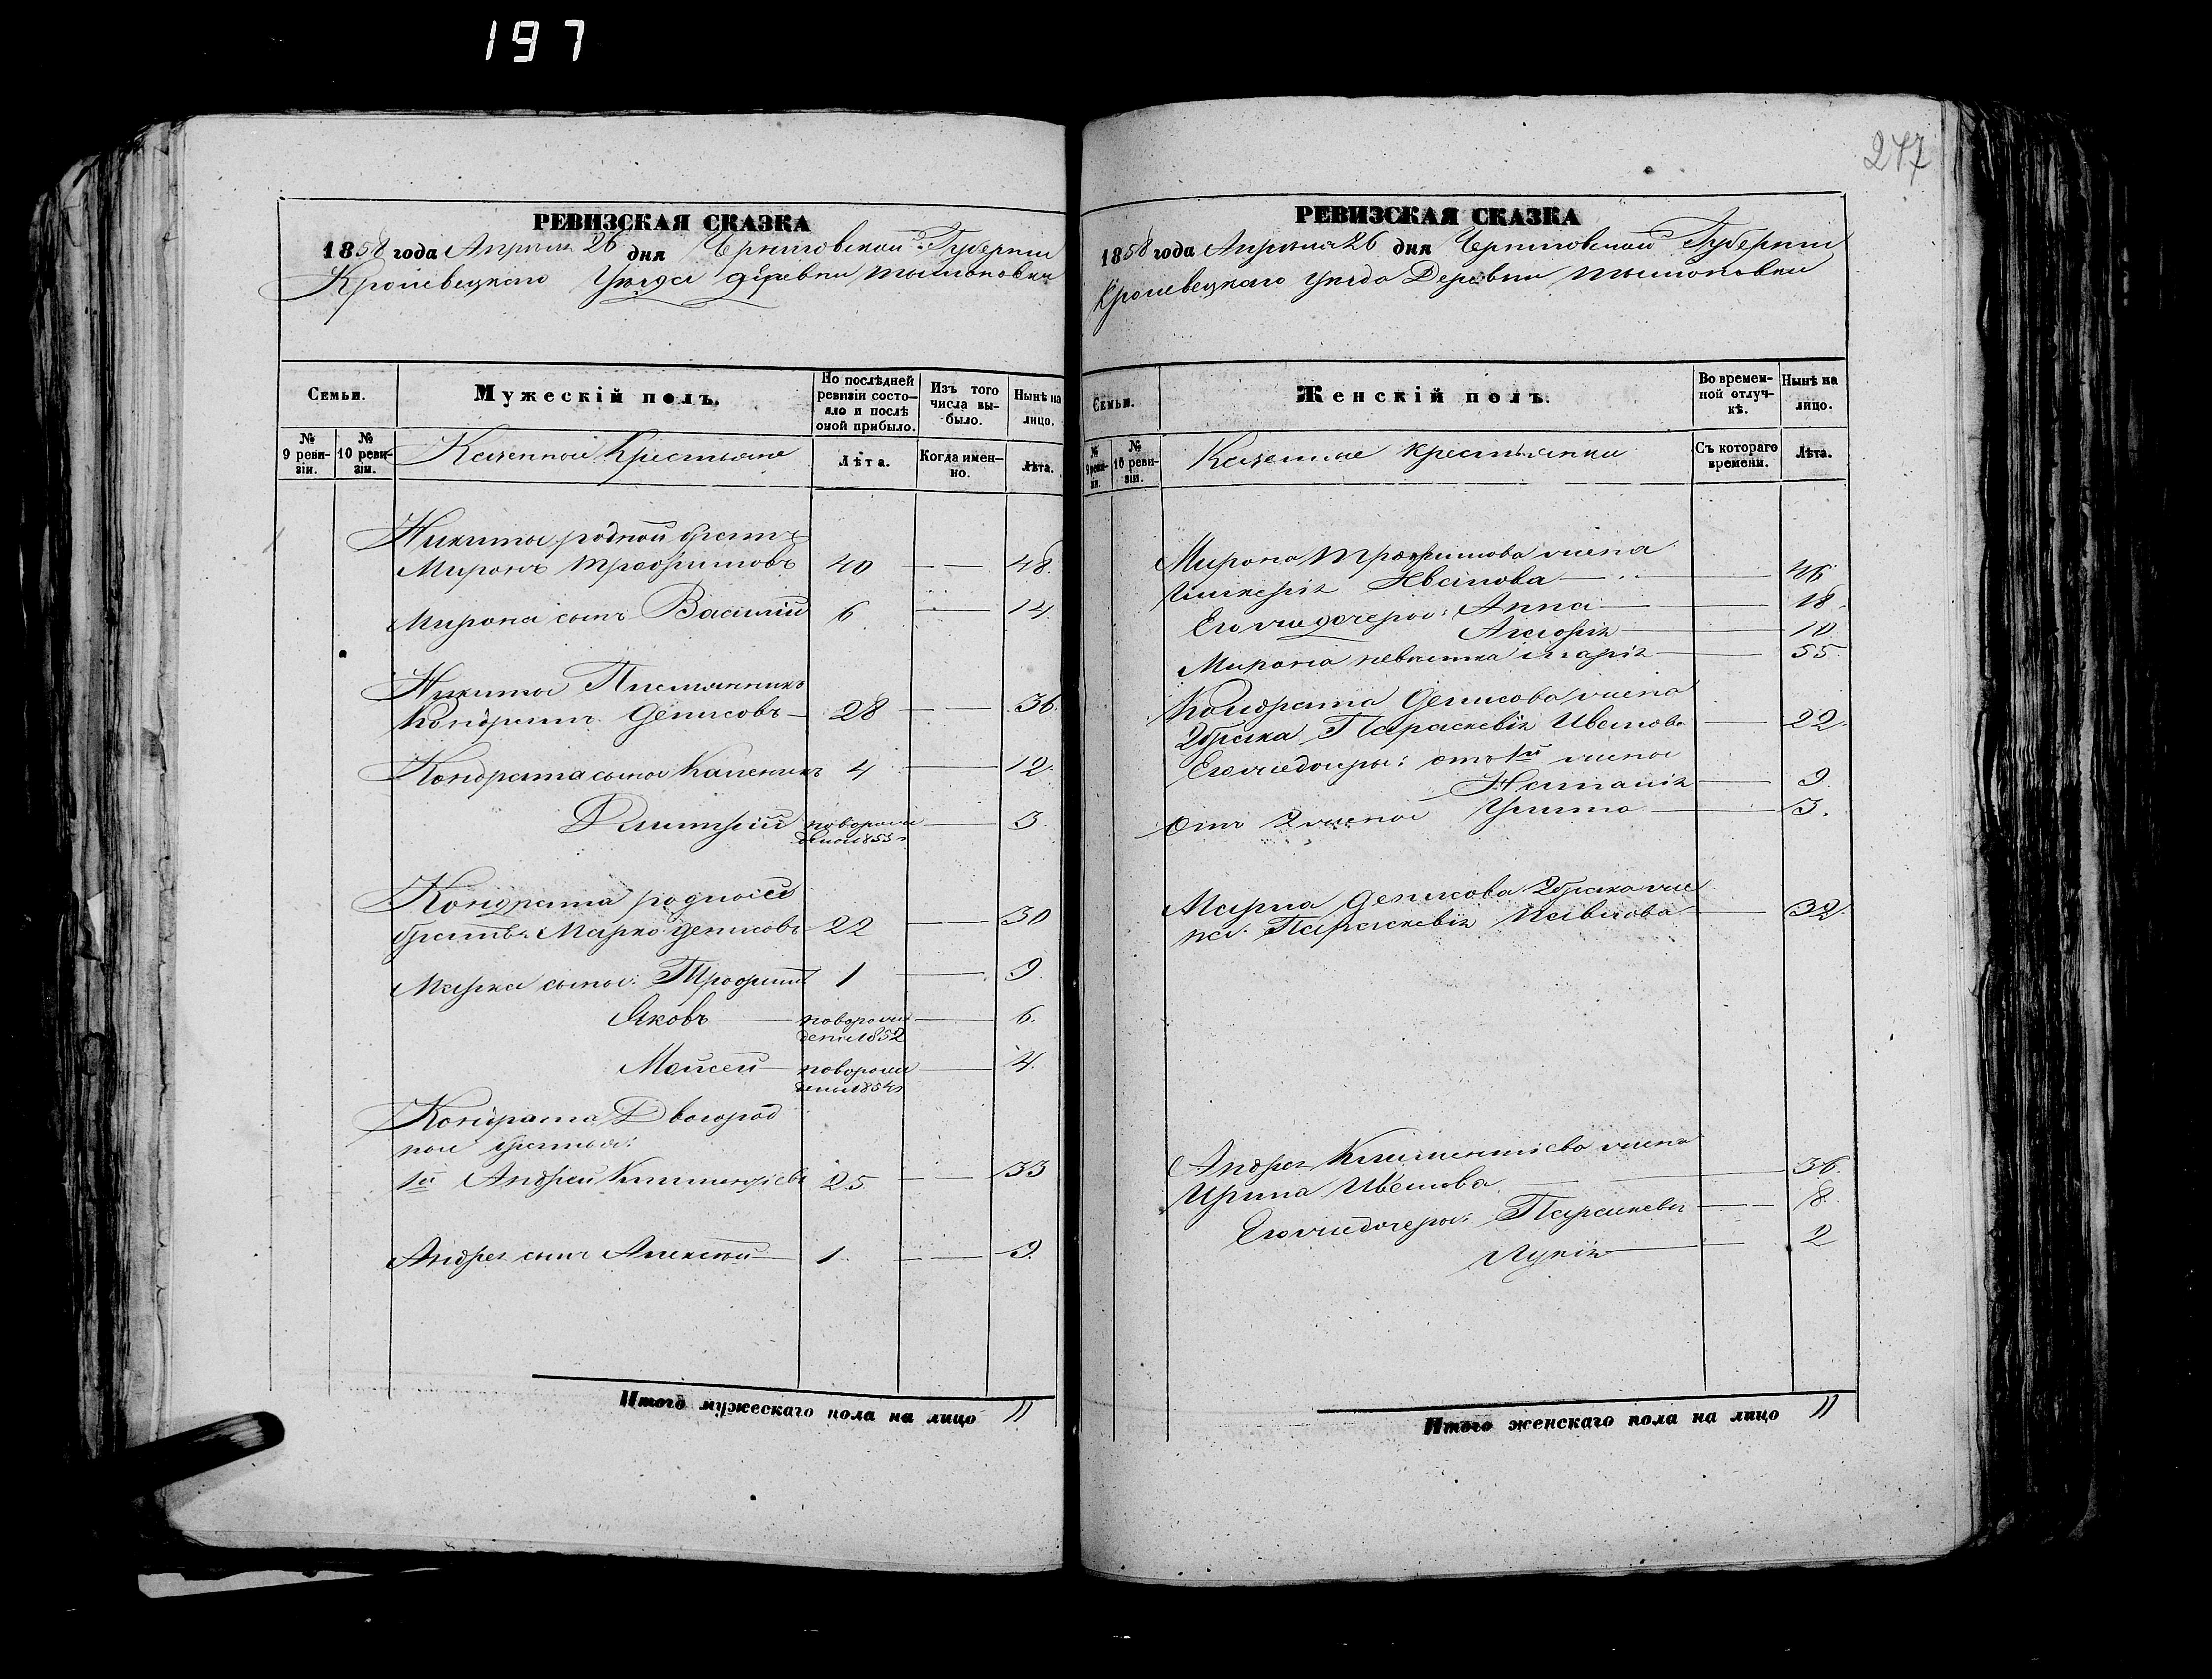 197
РЕВИЗСКАЯ СКАЗКА
1858 года Апреля 26 дня Черниговской Губернии
Кролевецкаго Уезда деревни
Семьи.
Мужескій полъ.
По послѣдней ревизіи состояло и послѣ оной прибыло.
Изъ того числа выбыло.
Нынѣ на лицо.
№ 9 ревизіи.
№ 10 ревизіи.
Казенныи Крестьяне
Лѣта.
Когда именно.
Лѣта.
Никиты родной братъ
Миронъ Трофимовъ 40 — 48.
Мирона сынъ Василий 6 — 14
Никиты Племянникъ
Кондратъ Денисовъ 28 — 36.
Кондрата сыны Каленикъ 4 — 12.
Дмитрій новорож 3
денои 1855 г
Кондрата родной
братъ Марко Денисовъ 22 — 30
Марка сыны: Трофимъ 1 — 9.
Яковъ новорож 6.
ден 1852
Мойсей новорож 4.
ден 1854 г
Кондрата Двоюрод
ные братья:
1й Андрей Климентіевъ 25 — 33
Андрея сынъ Алексѣй 1. — 9.
Итого мужескаго пола на лицо 11
247
РЕВИЗСКАЯ СКАЗКА
1858 года Апреля 26 дня Черниговской Губернии
Кролевецкаго уезда Деревни
Семьи.
Женскій полъ.
Во временной отлучкѣ.
Нынѣ на лицо.
№ 9 ревизіи.
№ 10 ревизіи.
Казенные крестьянки
Съ котораго времени.
Лѣта.
Мирона Трофимова жена
Гликерія Иванова — 46
Его же дочеры: Анна — 18.
10.
Мирона невестка Марія — 55.
Кондрата Денисова жена
2 брака Параскевія Иванова — 22.
Его же дочры: отъ 1й жены
Наталія — 9.
Отъ 2 жены Улита — 3.
Марка Денисова 2 брака же
на: Параскевія Павлова — 32.
Андрея Климентіева жена
Ирина Иванова — 36.
Его же дочеры: Параскевія — 8.
Лукія — 2
Итого женскаго пола на лицо 11